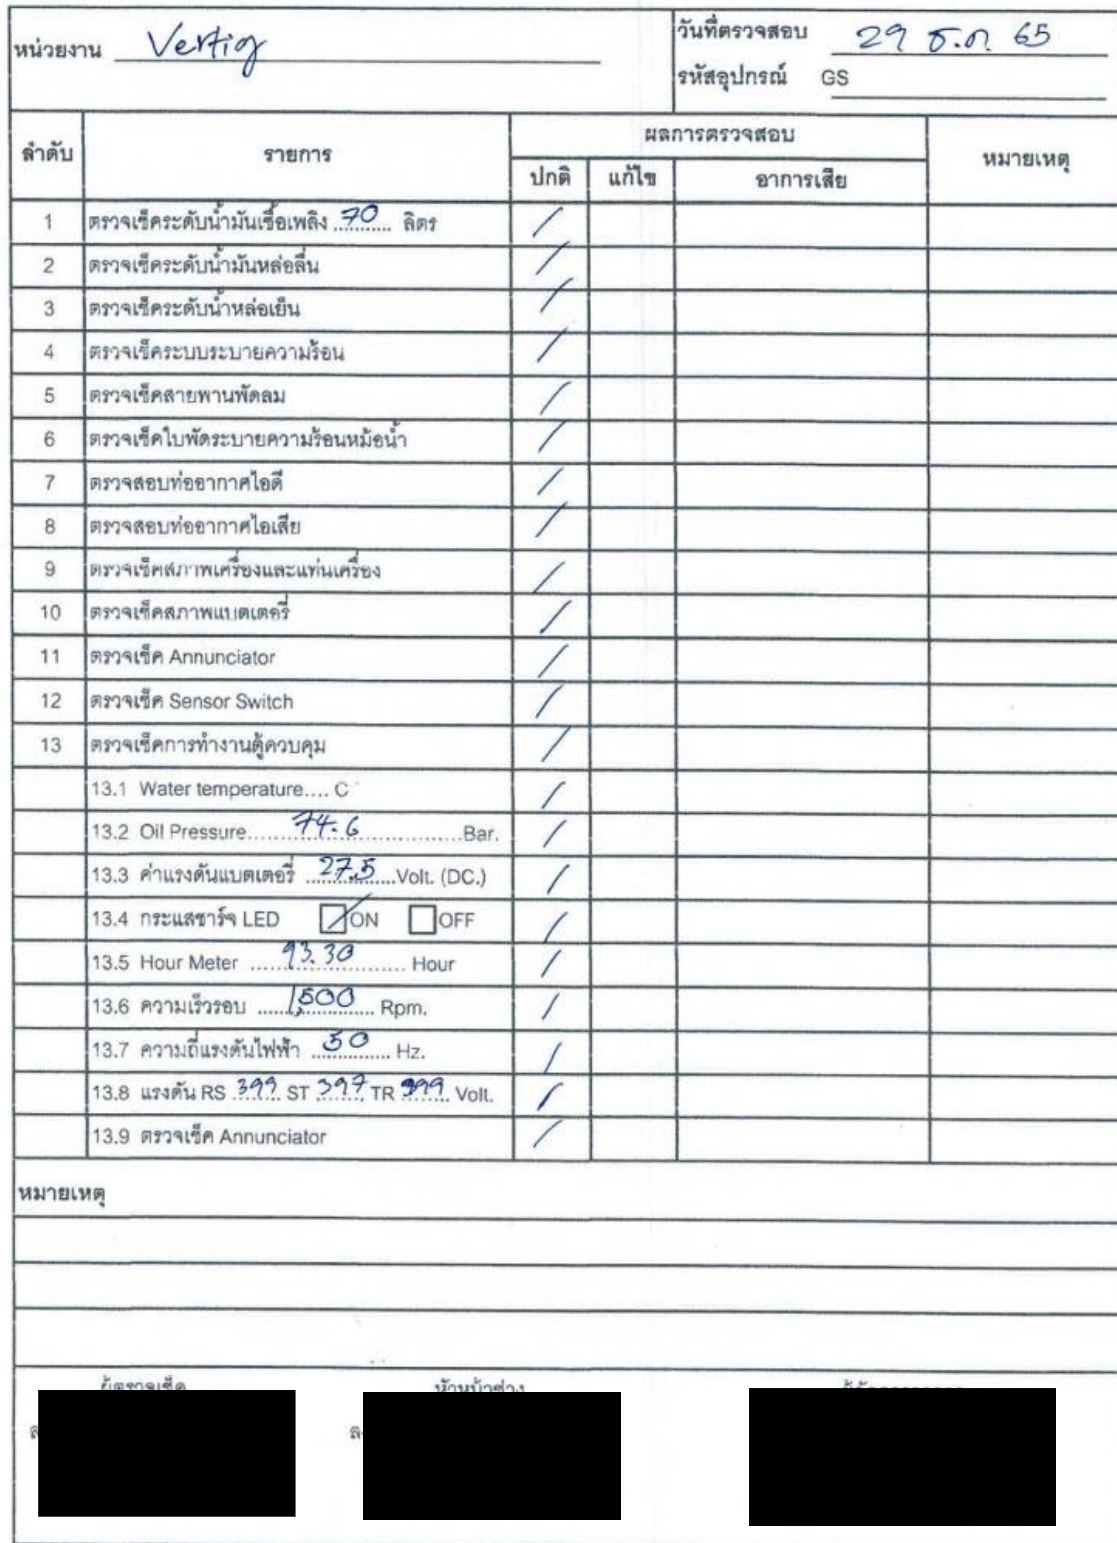 หน่วยงาน Vertiq
วันที่ตรวจสอบ 29 ธ.ค. 65
รหัสอุปกรณ์ GS
ลำดับ รายการ ผลการตรวจสอบ หมายเหตุ
ปกติ แก้ไข อาการเสีย
1 ตรวจเช็คระดับน้ำมันเชื้อเพลิง 70 ลิตร /
2 ตรวจเช็คระดับน้ำมันหล่อลื่น /
3 ตรวจเช็คระดับน้ำหล่อเย็น /
4 ตรวจเช็คระบบระบายความร้อน /
5 ตรวจเช็คสายพานพัดลม /
6 ตรวจเช็คใบพัดระบายความร้อนหม้อน้ำ /
7 ตรวจสอบท่ออากาศไอดี /
8 ตรวจสอบท่ออากาศไอเสีย /
9 ตรวจเช็คสภาพเครื่องและแท่นเครื่อง /
10 ตรวจเช็คสภาพแบตเตอรี่ /
11 ตรวจเช็ค Annunciator /
12 ตรวจเช็ค Sensor Switch /
13 ตรวจเช็คการทำงานตู้ควบคุม /
13.1 Water temperature.... C /
13.2 Oil Pressure 74.6 Bar. /
13.3 ค่าแรงดันแบตเตอรี่ 27.5 Volt. (DC.) /
13.4 กระแสชาร์จ LED ON OFF /
13.5 Hour Meter 93.30 Hour /
13.6 ความเร็วรอบ 1,500 Rpm. /
13.7 ความถี่แรงดันไฟฟ้า 50 Hz. /
13.8 แรงดัน RS 399 ST 397 TR 399 Volt. /
13.9 ตรวจเช็ค Annunciator /
หมายเหตุ
ผู้ตรวจเช็ค หัวหน้าช่าง